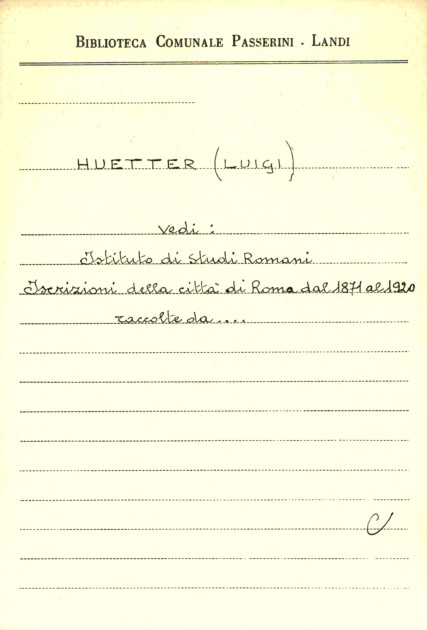 BIBLIOTECA COMUNALE PASSERINI - LANDI
HUETTER (LUIGI)
vedi :
Istituto di Studi Romani
Iscrizioni della città di Roma dal 1871 al 1920
raccolte da ....